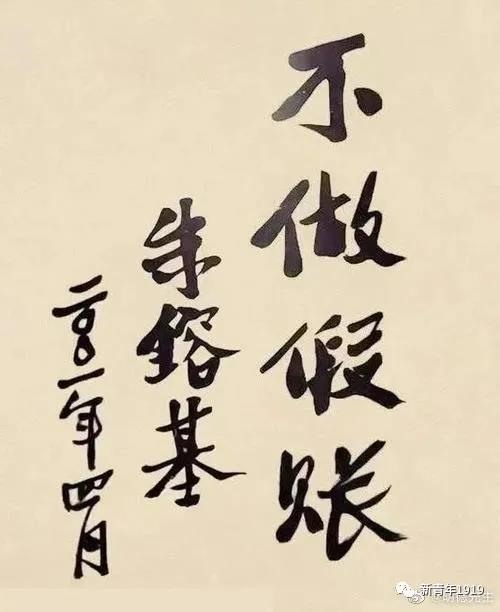 不做假账
朱鎔基
二〇〇一年四月
新青年1919